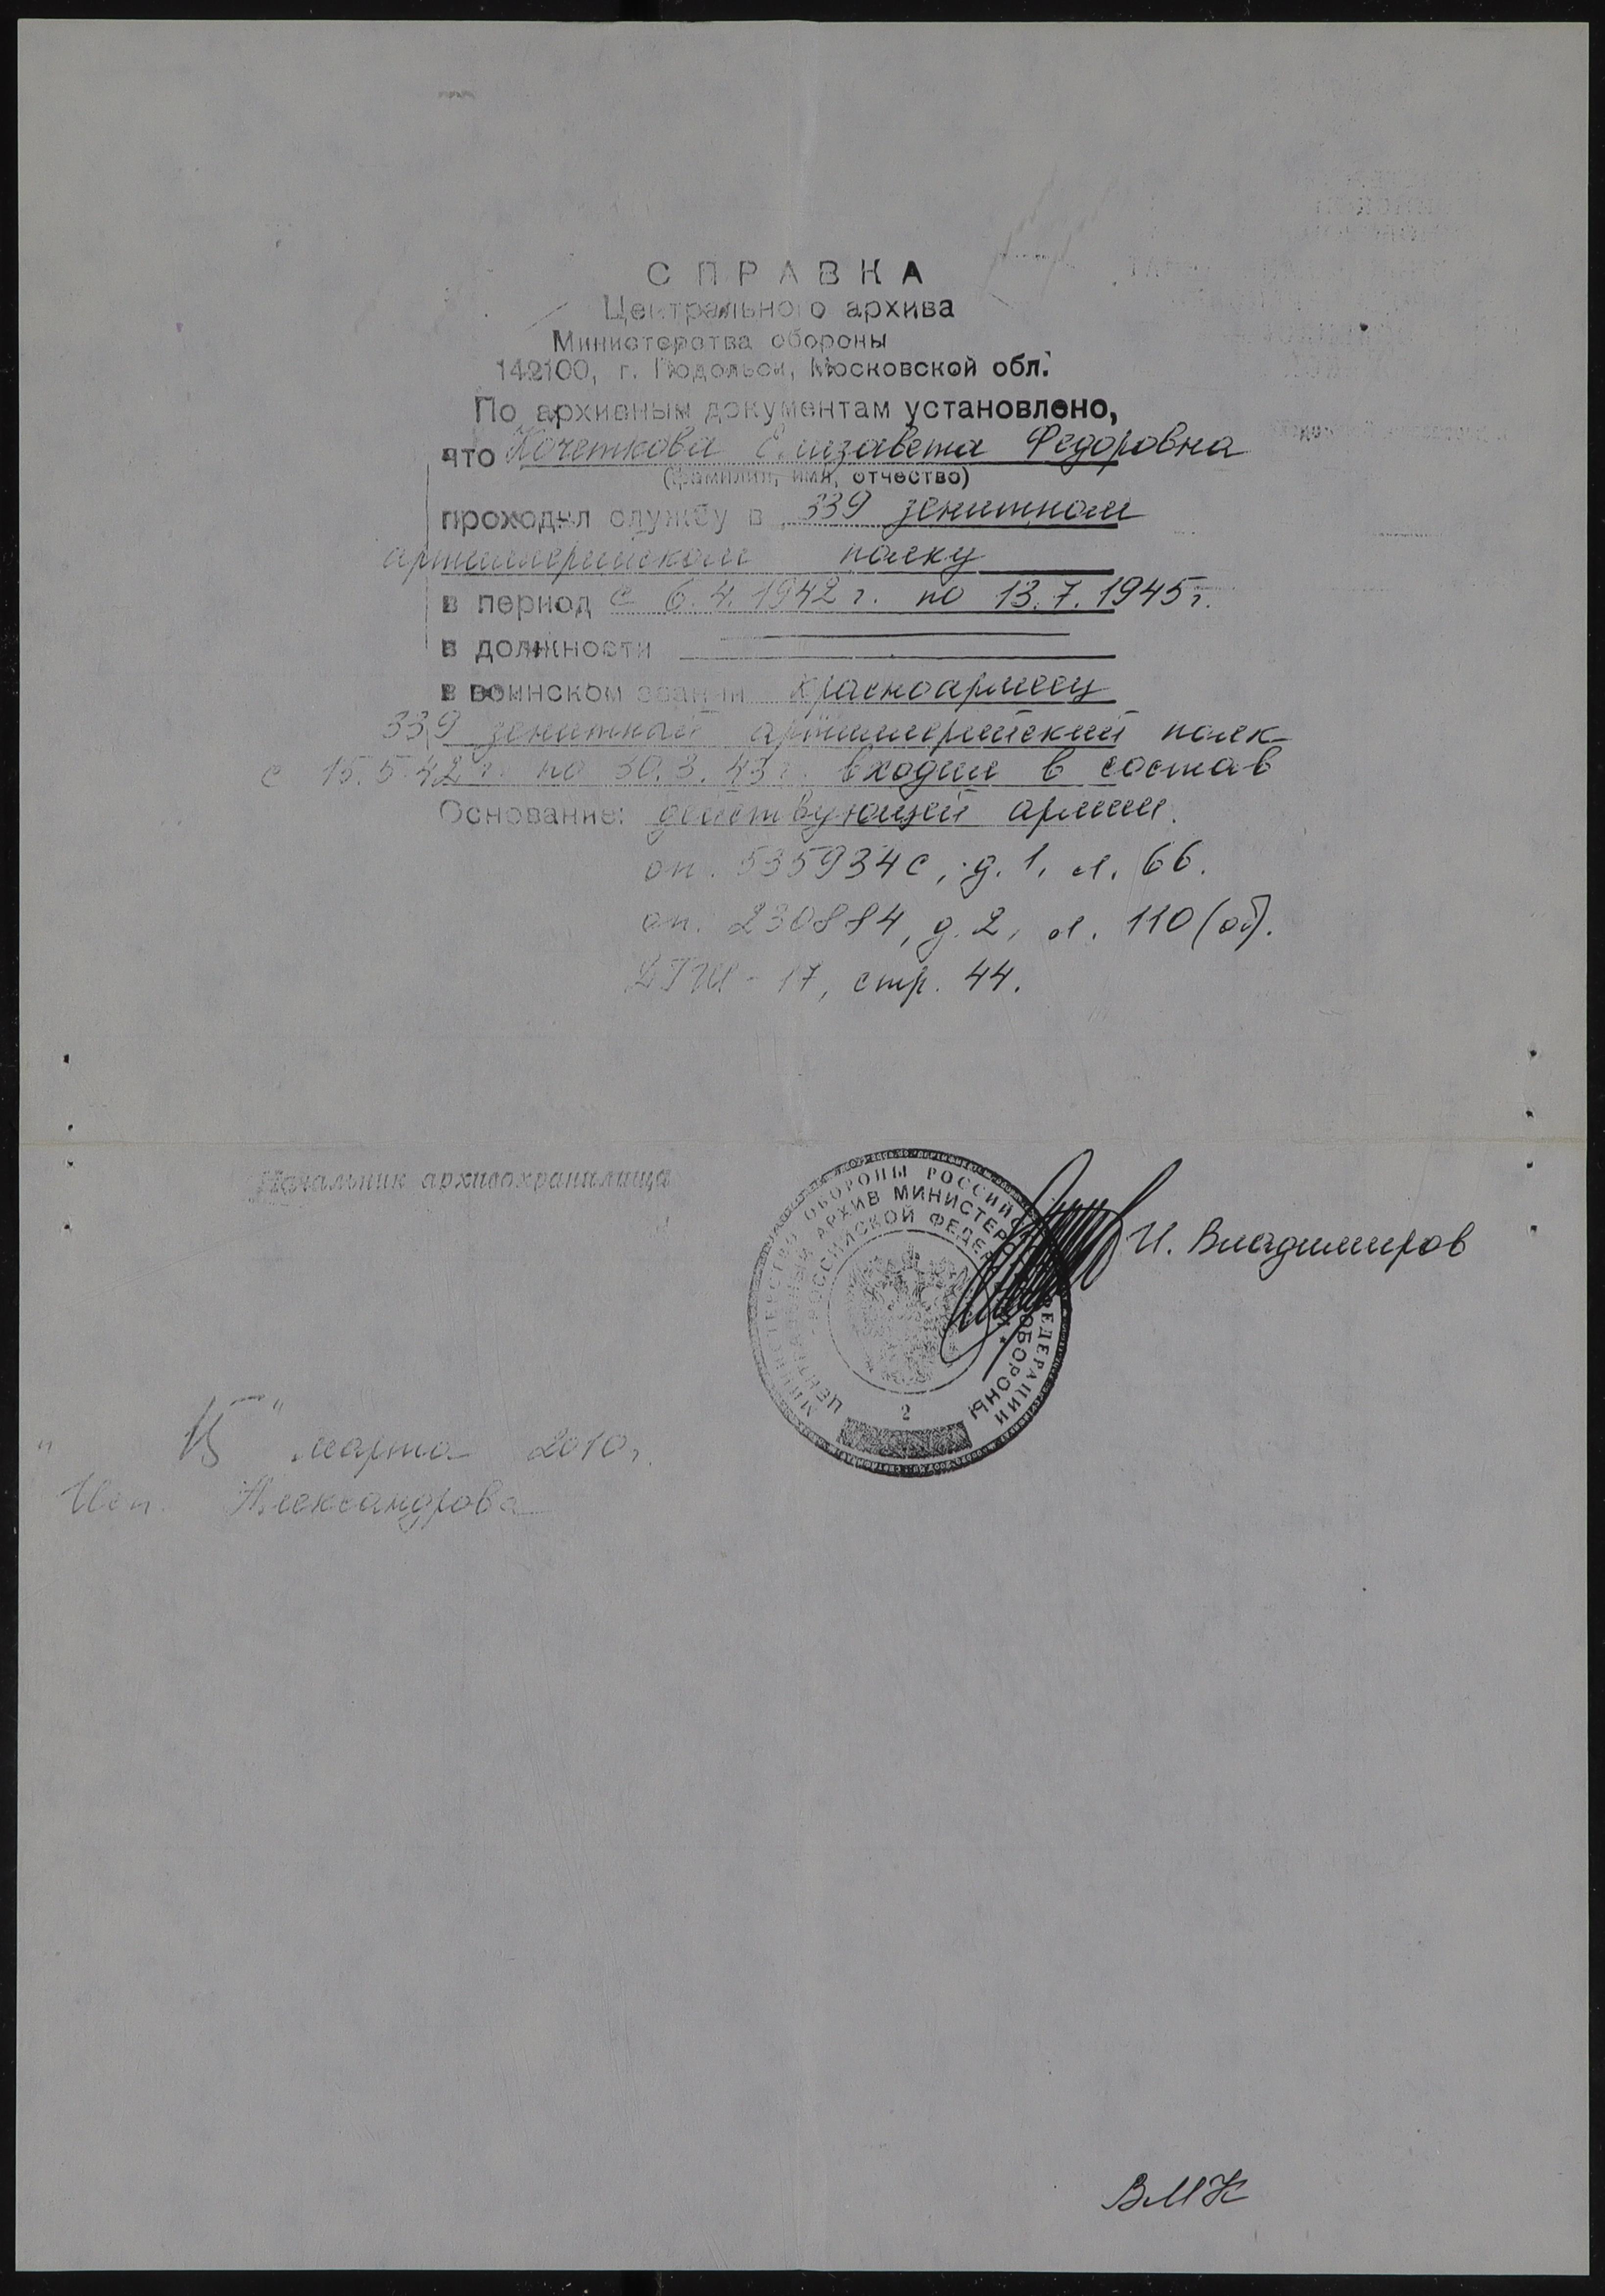 СПРАВКА
Центрального архива
Министерства обороны
142100, г. Подольск, Московской обл.
По архивным документам установлено,
что Кочеткова Елизавета Федоровна
(фамилия, имя, отчество)
проходил службу в 339 зенитном
артиллерийском полку
в период с 6.4.1942 г. по 13.7.1945 г.
в должности
в воинском звании красноармеец
339 зенитный артиллерийский полк
с 15.5.42 г. по 30.3.43 г. входил в состав
Основание: действующей армии.
оп. 535934с, д. 1, л. 66.
оп. 230884, д. 2, л. 110 (об).
ДГШ - 17, стр. 44.
Начальник архивохранилища
И. Владимиров
МИНИСТЕРСТВО ОБОРОНЫ РОССИЙСКОЙ ФЕДЕРАЦИИ
ЦЕНТРАЛЬНЫЙ АРХИВ МИНИСТЕРСТВА ОБОРОНЫ
РОССИЙСКОЙ ФЕДЕРАЦИИ *
2
" 15 " марта 2010 г.
Исп. Александрова
ВМК